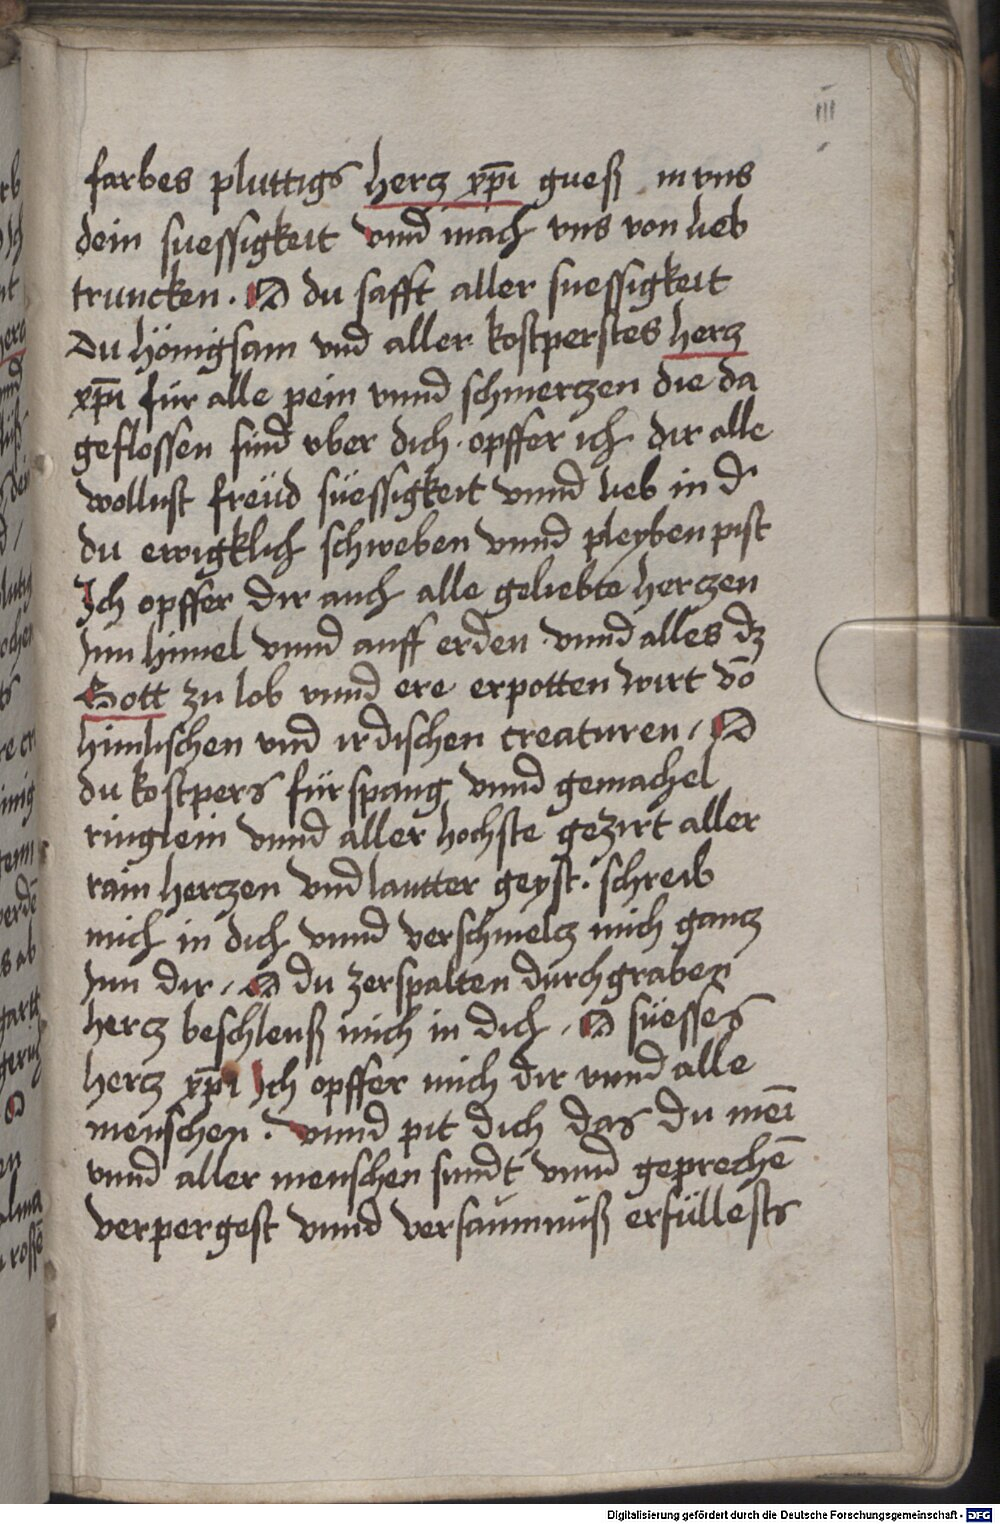 III
farbes pluttigs hercz xp̄i gueß in vns
dein suessigkeit vnnd mach vns von lieb
truncken. O du safft aller suessigkeit
Du hönigsam vnd aller kostperstes hercz
xp̄i für alle pein vnnd schmerczen die da
geflossen sind vber dich. opffer ich dir alle
wollust freüd süessigkeit vnnd lieb in d'
du ewigklich schweben vnnd pleyben pist
Ich opffer dir auch alle geliebte herczen
Inn himel vnnd auff erden. vnnd alles dz
Gott zu lob vnnd ere erpotten wirt vō
himlischen vnd irdischen creaturen / O
du kostpers fürspang vnnd gemachel
ringlein vnnd aller hochste gezirt aller
rain herczen vnd lautter geyst. schreib
mich in dich vnnd verschmelcz mich gancz
Inn dir / O du zerspalten durchgraben
hercz beschleuß mich in dich / O süesses
hercz xp̄i Ich opffer mich dir vnnd alle
menschen. vnnd pit dich das du meī
vnnd aller menschen sundt vnnd geprechē
verpergest vnnd versaumnuß erfüllests
Digitalisierung gefördert durch die Deutsche Forschungsgemeinschaft - DFG